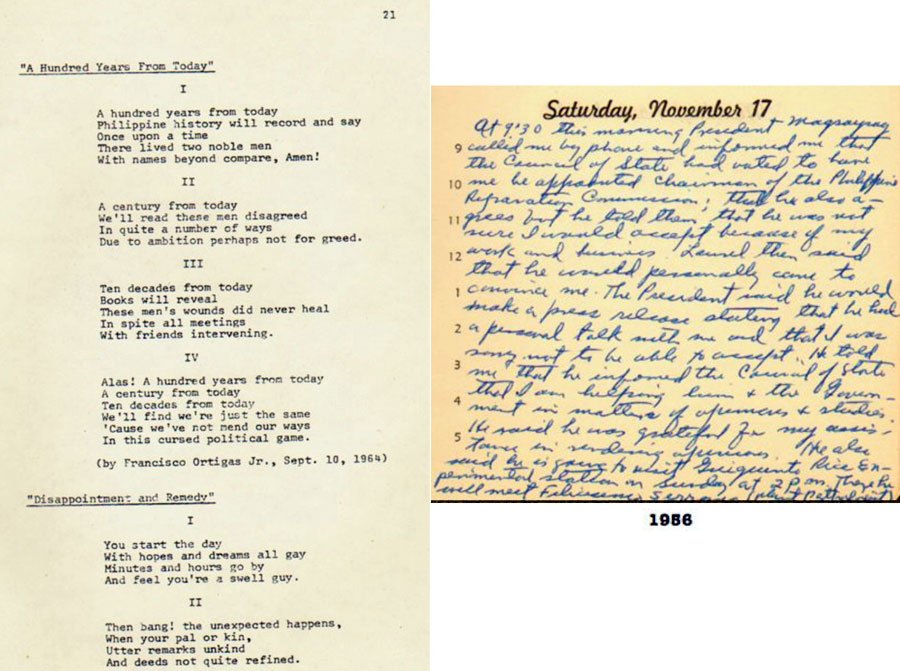 21
"A Hundred Years From Today"
I
A hundred years from today
Philippine history will record and say
Once upon a time
There lived two noble men
With names beyond compare, Amen!
II
A century from today
We'll read these men disagreed
In quite a number of ways
Due to ambition perhaps not for greed.
III
Ten decades from today
Books will reveal
These men's wounds did never heal
In spite all meetings
With friends intervening.
IV
Alas! A hundred years from today
A century from today
Ten decades from today
We'll find we're just the same
'Cause we've not mend our ways
In this cursed political game.
(by Francisco Ortigas Jr., Sept. 10, 1964)
"Disappointment and Remedy"
I
You start the day
With hopes and dreams all gay
Minutes and hours go by
And feel you're a swell guy.
II
Then bang! the unexpected happens,
When your pal or kin,
Utter remarks unkind
And deeds not quite refined.
Saturday, November 17
At 9:30 this morning President Magsaysay
9 called me by phone and informed me that
the Council of State had voted to have
10 me be appointed Chairman of the Philippine
Reparation Commission; that he also a-
11 grees but he told them that he was not
sure I would accept because of my
12 work and business. Laurel then said
that he would personally come to
1 convince me. The President said he would
make a press release stating that he had
2 a personal talk with me and that I was
sorry not to be able to accept. He told
3 me that he informed the Council of State
that I am helping him & the Govern-
4 ment in matters of opinions & studies.
He said he was grateful for my assis-
5 tance in rendering opinions. He also
said he is going to visit Guiguinto Rice Ex-
perimental Station on Sunday at 2 p.m. There he
will meet Feliciano Serrano
1956